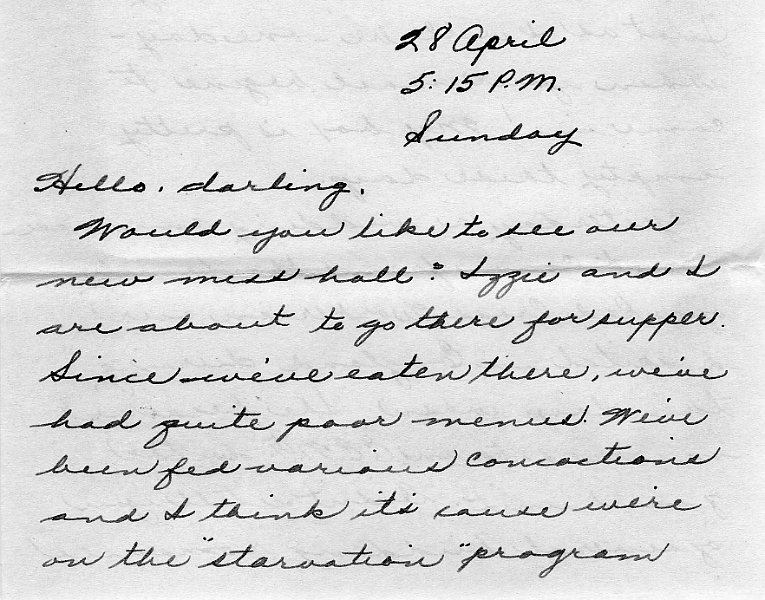 28 April
5:15 P.M.
Sunday
Hello, darling,
Would you like to see our
new mess hall? Izzie and I
are about to go there for supper.
Since we've eaten there, we've
had quite poor menus. We've
been fed various concoctions
and I think it's cause we're
on the "starvation" program